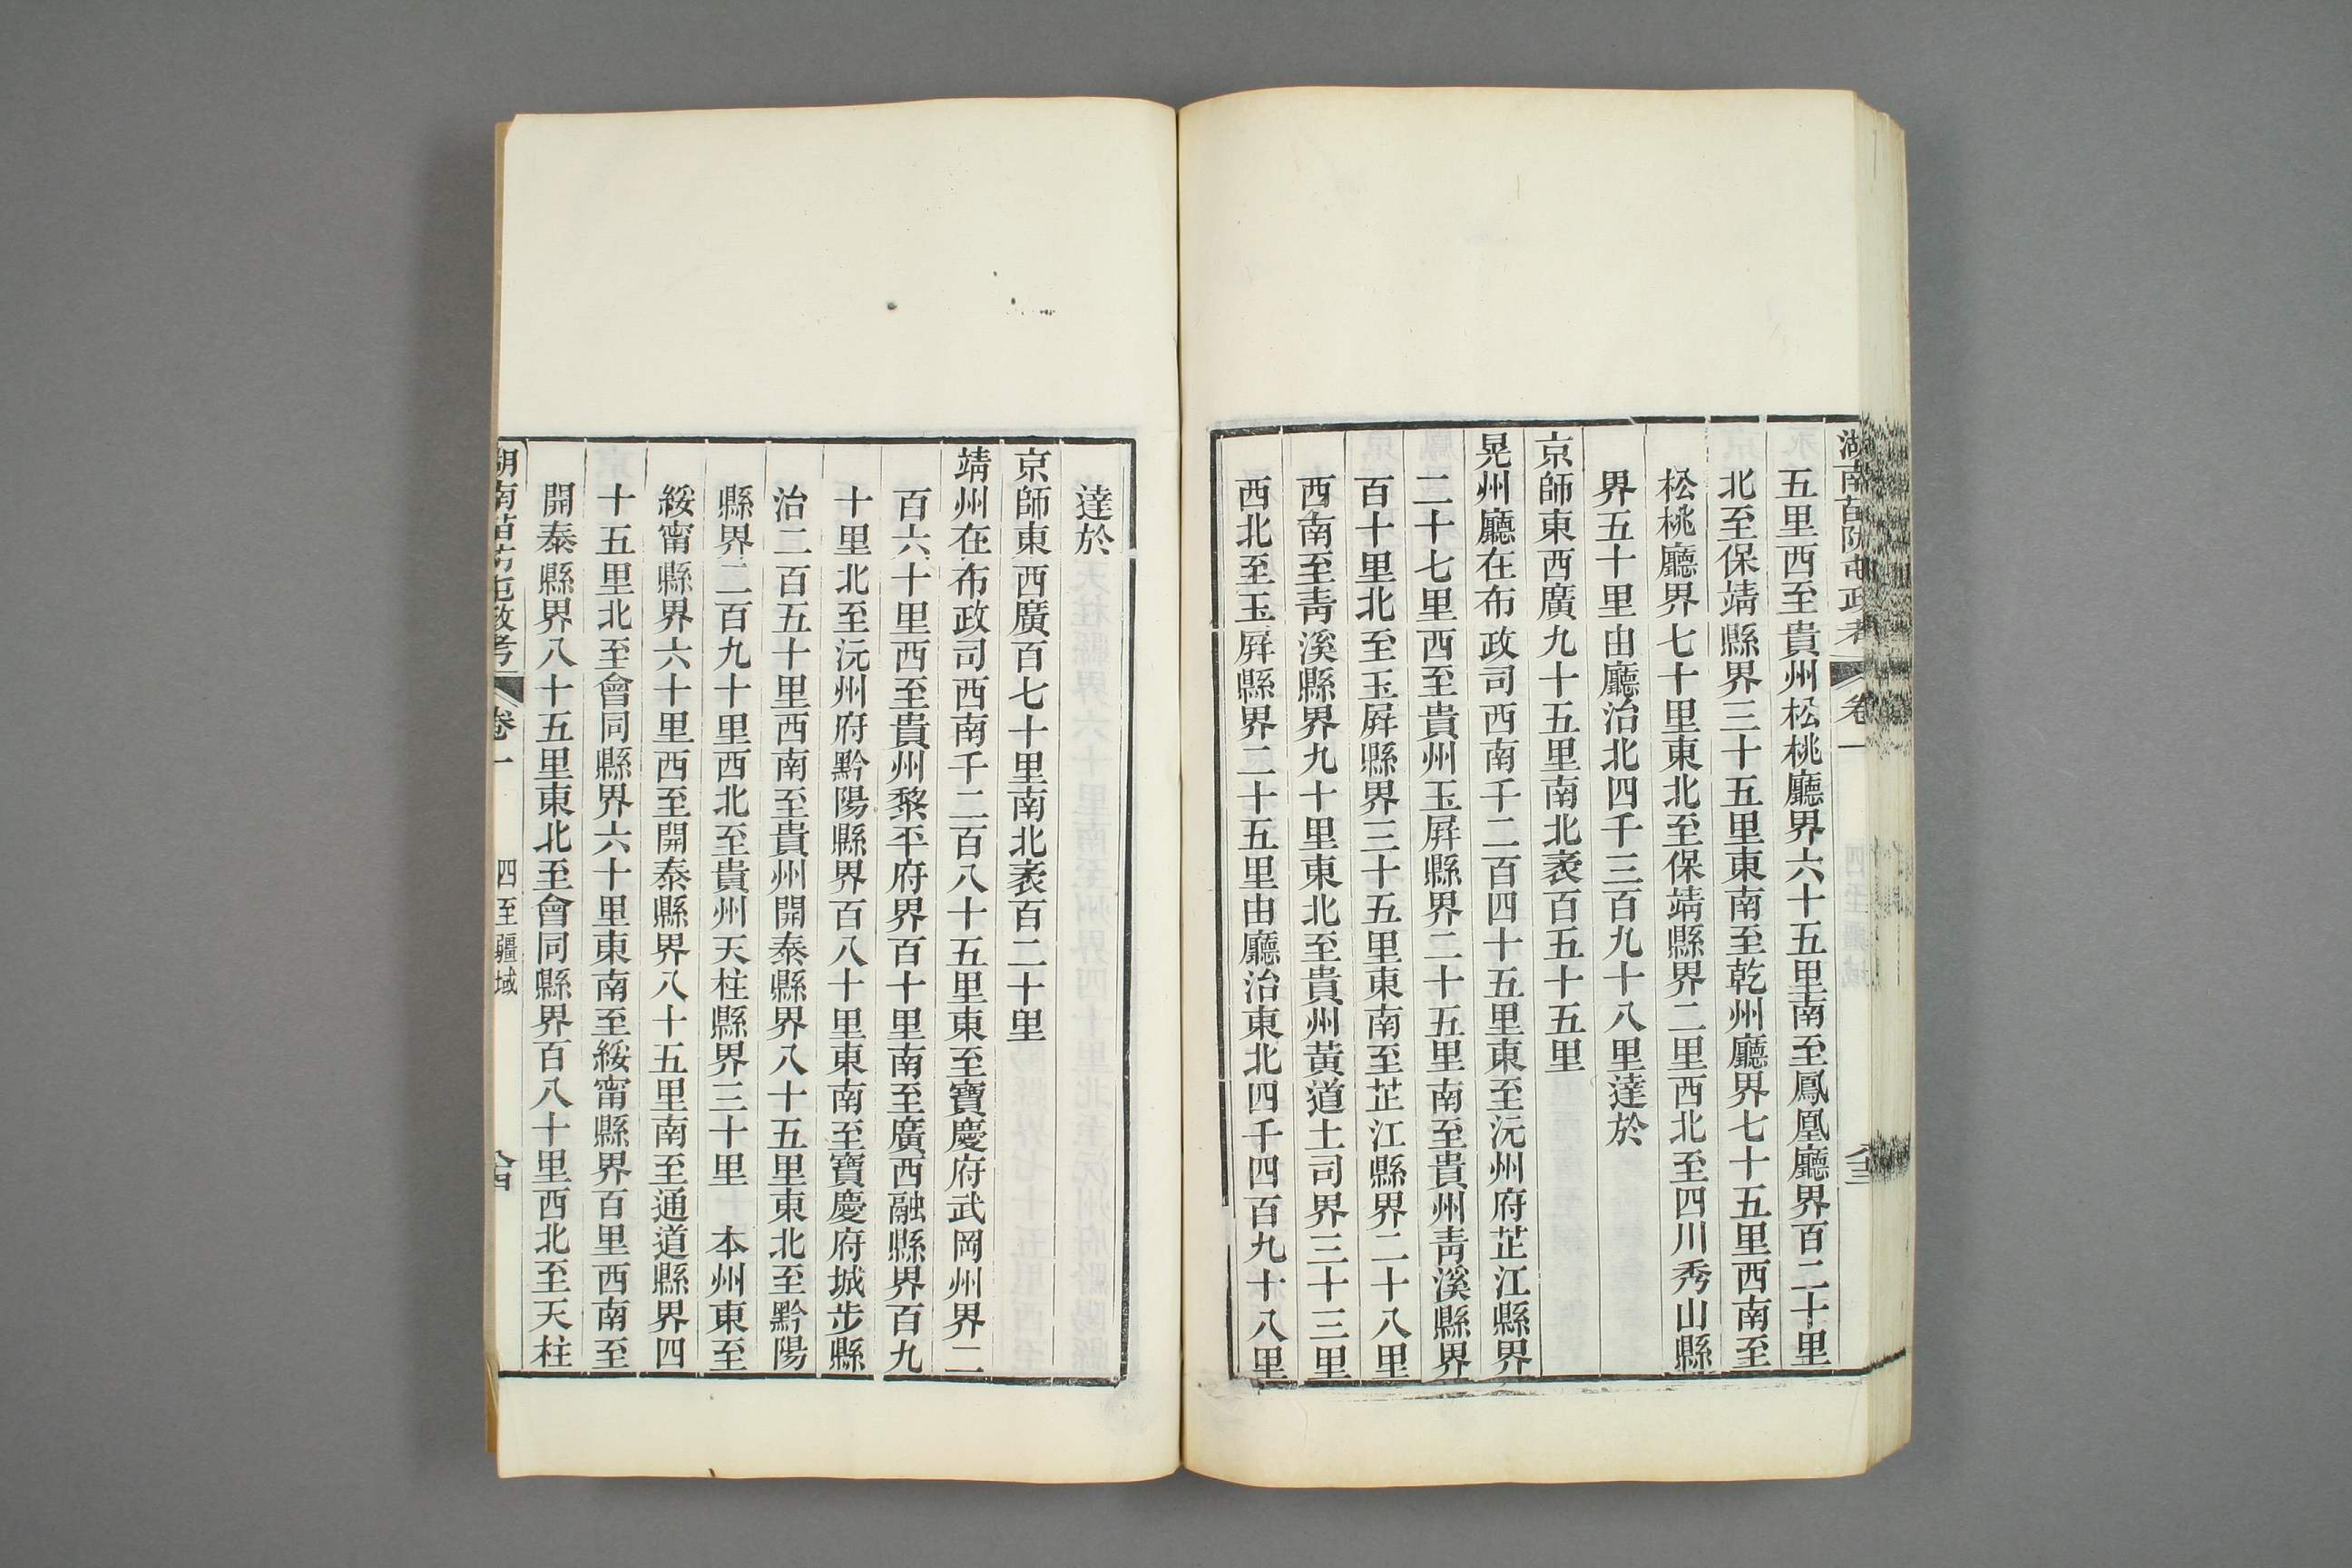 湖南苗防屯政考 卷一
五里西至貴州松桃廳界六十五里南至鳳凰廳界百二十里
北至保靖縣界三十五里東南至乾州廳界七十五里西南至
松桃廳界七十里東北至保靖縣界二里西北至四川秀山縣
界五十里由廳治北四千三百九十八里達於
京師東西廣九十五里南北袤百五十五里
晃州廳在布政司西南千二百四十五里東至沅州府芷江縣界
二十七里西至貴州玉屏縣界二十五里南至貴州靑溪縣界
百十里北至玉屏縣界三十五里東南至芷江縣界二十八里
西南至靑溪縣界九十里東北至貴州黃道土司界三十三里
西北至玉屏縣界二十五里由廳治東北四千四百九十八里
達於
京師東西廣百七十里南北袤百二十里
靖州在布政司西南千二百八十五里東至寶慶府武岡州界二
百六十里西至貴州黎平府界百十里南至廣西融縣界百九
十里北至沅州府黔陽縣界百八十里東南至寶慶府城步縣
治二百五十里西南至貴州開泰縣界八十五里東北至黔陽
縣界二百九十里西北至貴州天柱縣界三十里 本州東至
綏甯縣界六十里西至開泰縣界八十五里南至通道縣界四
十五里北至會同縣界六十里東南至綏甯縣界百里西南至
開泰縣界八十五里東北至會同縣界百八十里西北至天柱
湖南苗防屯政考 卷一 四至疆域